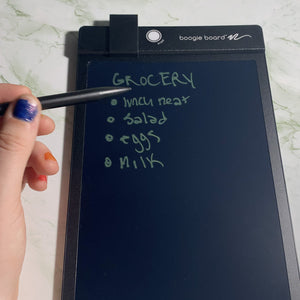 boogie board
GROCERY
• lunch meat
• salad
• eggs
• MILK